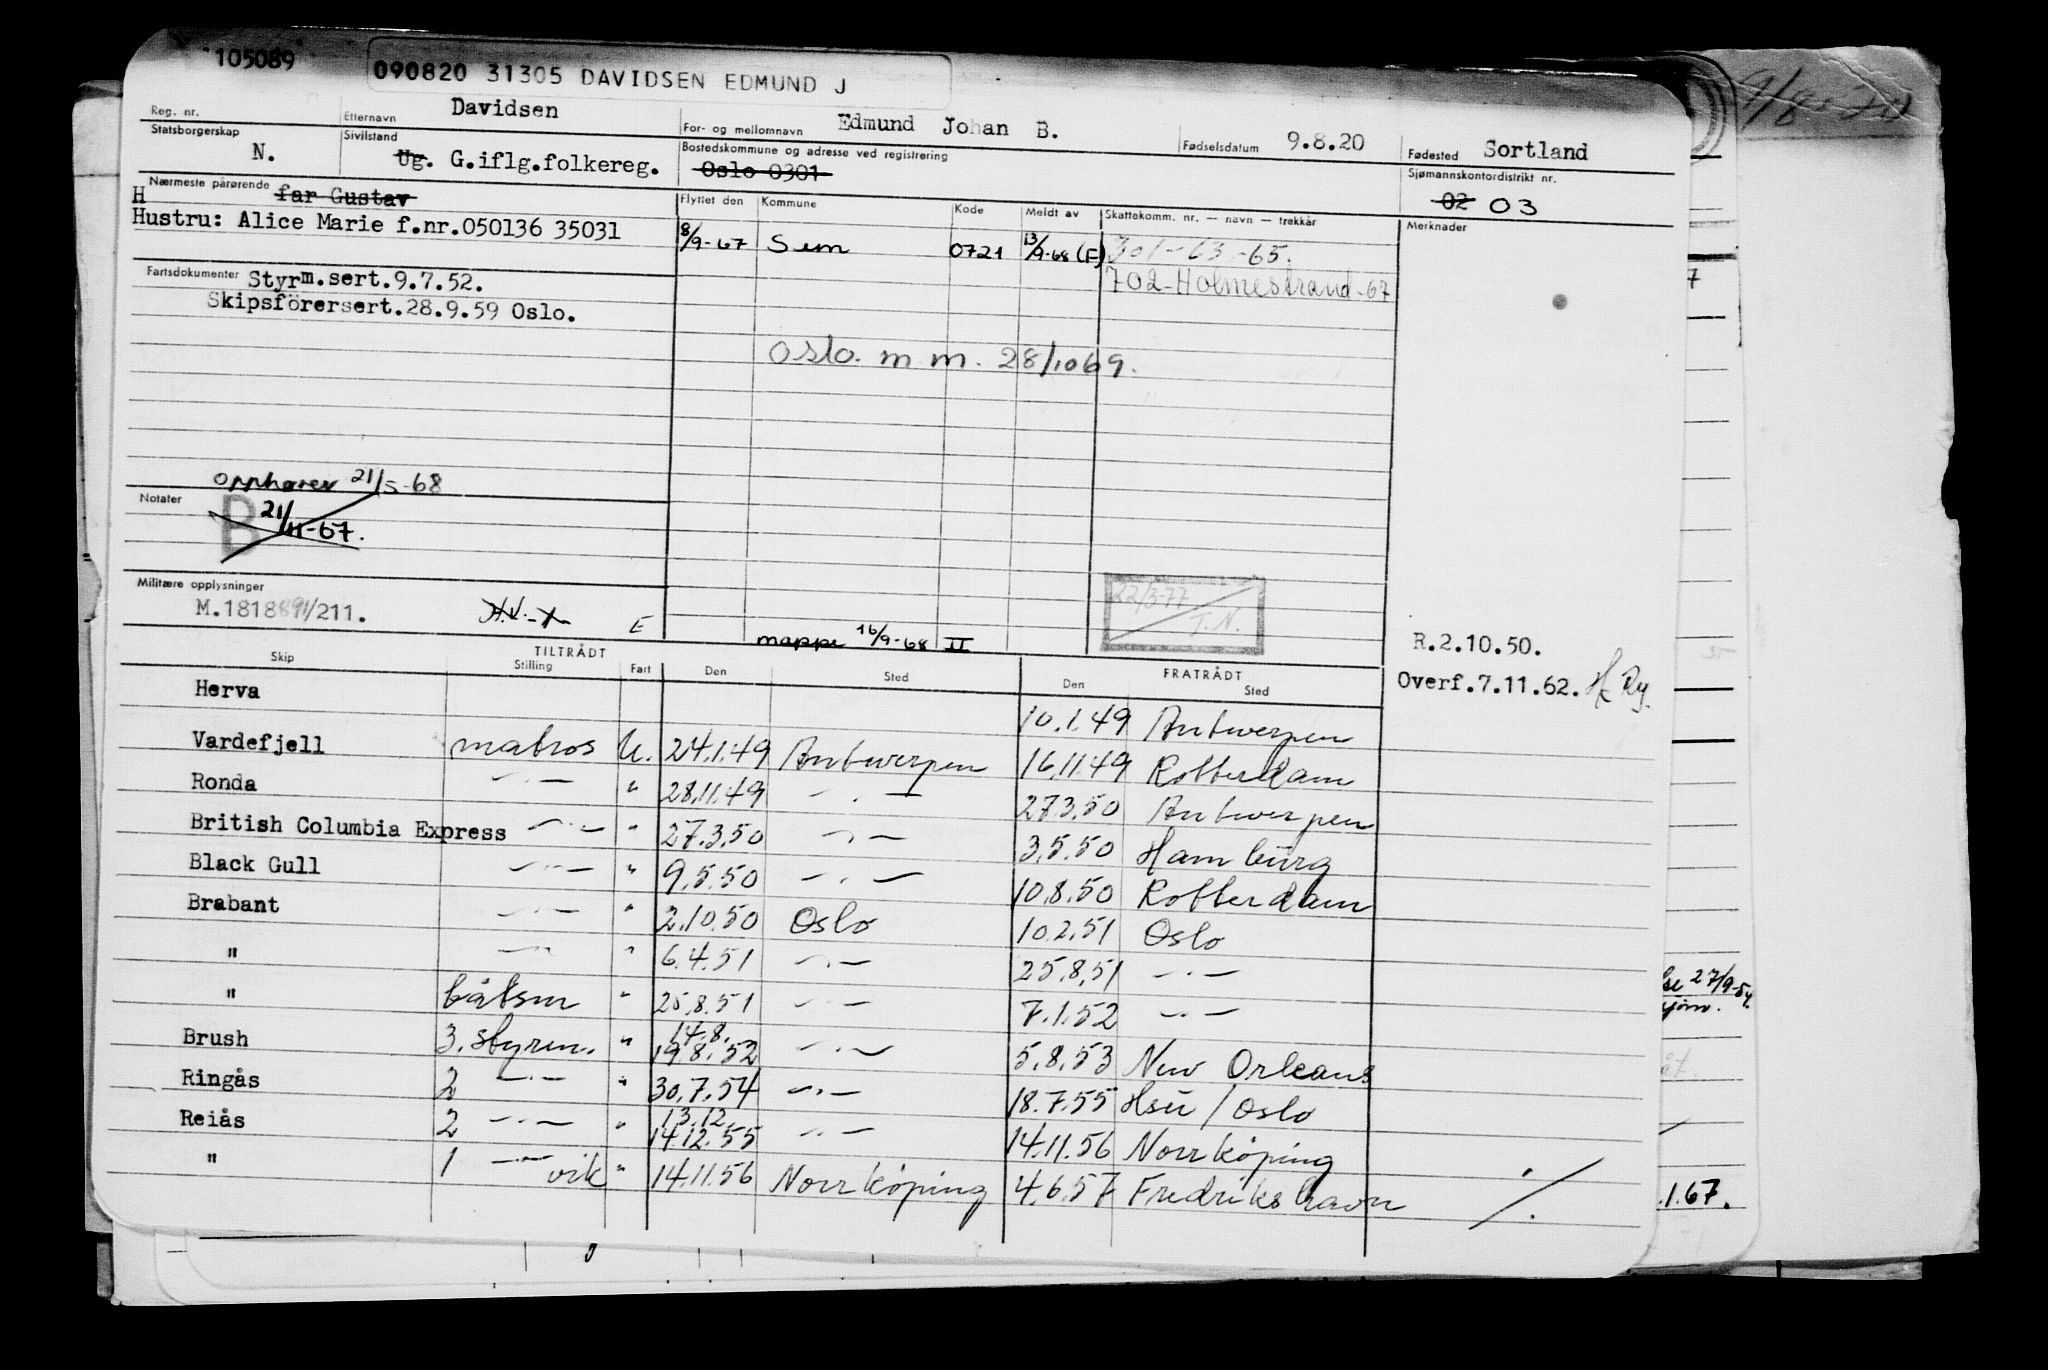 105089
090820 31305 DAVIDSEN EDMUND J
Reg. nr.
Etternavn Davidsen
For- og mellomnavn Edmund Johan B.
Fødselsdatum 9.8.20
Fødested Sortland
Statsborgerskap N.
Sivilstand Ug. G.iflg.folkereg.
Bostedskommune og adresse ved registrering Oslo 0301
Sjømannskontordistrikt nr. 02 03
Nærmeste pårørende far Gustav
H
Hustru: Alice Marie f.nr.050136 35031
Flyttet den Kommune Kode Meldt av Skattekomm. nr. — navn — trekkår Merknader
8/9-67 Sem 0721 13/9-68 (F) 301-63-65.
702-Holmestrand-67
Fartsdokumenter Styrm.sert.9.7.52.
Skipsförersert.28.9.59 Oslo.
Oslo. m m. 28/10 69.
Opphører 21/5-68
Notater B 21/11-67.
Militære opplysninger
M.1818891/211. H.V. E
mappe 16/9-68 II
22/3-77
T.N.
R.2.10.50.
Overf.7.11.62.
TILTRÅDT FRATRÅDT
Skip Stilling Fart Den Sted Den Sted
Herva 10.1.49 Antwerpen
Vardefjell matros U. 24.1.49 Antwerpen 16.11.49 Rotterdam
Ronda —·— " 28.11.49 —·— 27.3.50 Antwerpen
British Columbia Express —·— " 27.3.50 —·— 3.5.50 Hamburg
Black Gull —·— " 9.5.50 —·— 10.8.50 Rotterdam
Brabant —·— " 2.10.50 Oslo 10.2.51 Oslo
" —·— " 6.4.51 —·— 25.8.51 —·—
" båtsm " 25.8.51 —·— 7.1.52 —·—
Brush 3. styrm. " 14.8. 19.8.52 —·— 5.8.53 New Orleans
Ringås 2 —·— " 30.7.54 —·— 18.7.55 Hsu / Oslo
Reiås 2 —·— " 13.12. 14.12.55 —·— 14.11.56 Norrköping
" 1 —·— vik " 14.11.56 Norrköping 4.6.57 Fredrikshavn ·/.
9/8-20
7
27/9-54.
.1.67.